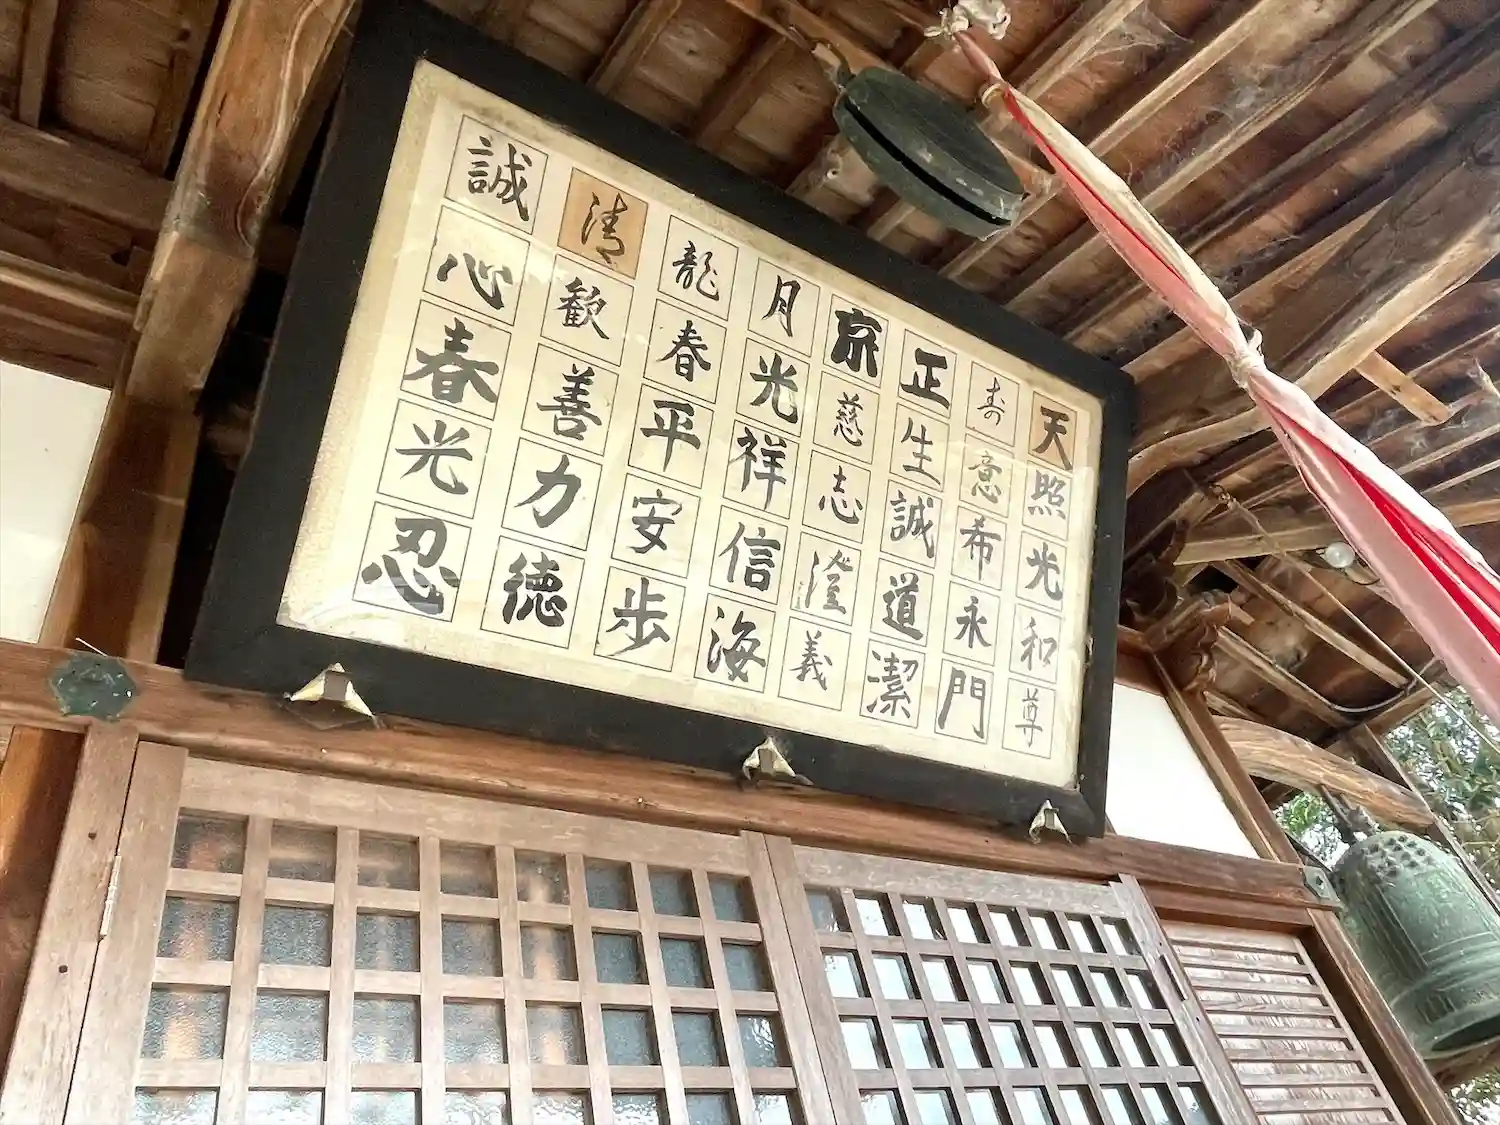 天照光和尊
寿意希永門
正生誠道潔
慈志澄義
月光祥信海
龍春平安歩
清歓善力徳
誠心春光忍